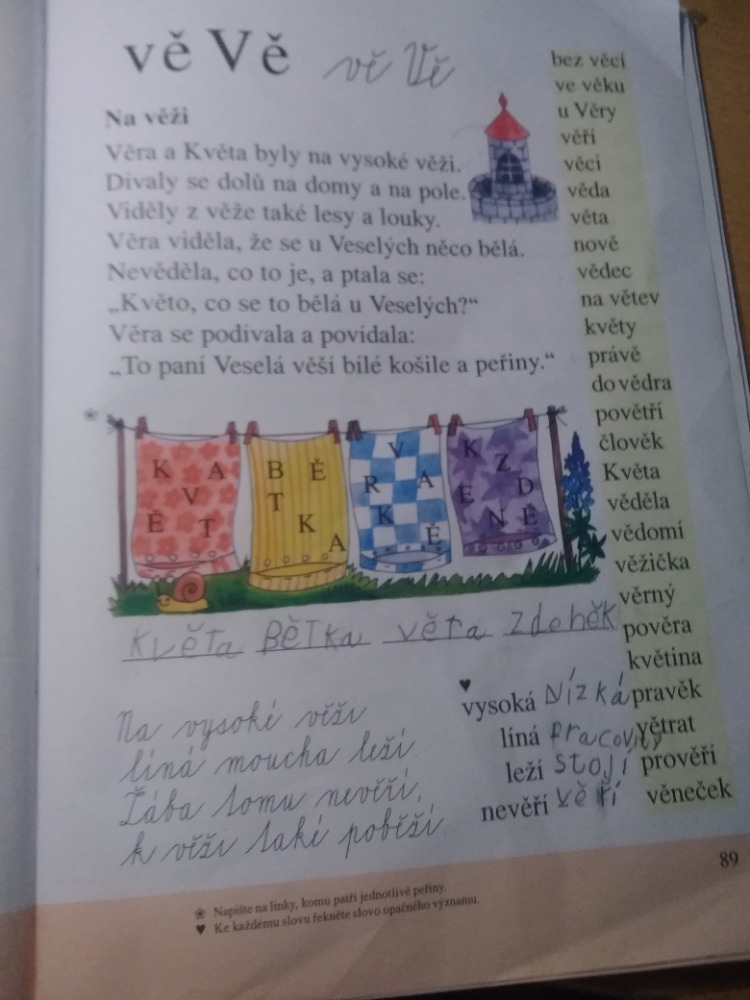 vě Vě vě Vě
Na věži
Věra a Květa byly na vysoké věži.
Dívaly se dolů na domy a na pole.
Viděly z věže také lesy a louky.
Věra viděla, že se u Veselých něco bělá.
Nevěděla, co to je, a ptala se:
„Květo, co se to bělá u Veselých?“
Věra se podívala a povídala:
„To paní Veselá věší bílé košile a peřiny.“
bez věcí
ve věku
u Věry
věří
věci
věda
věta
nově
vědec
na větev
květy
právě
dovědra
povětří
člověk
Květa
věděla
vědomí
věžička
věrný
pověra
květina
pravěk
větrat
prověří
věneček
K A V Ě T
B Ě T K A
V R A K Ě
K Z E D N Ě
Květa Bětka věra zdeněk
Na vysoké věži
líná moucha leží.
Žába tomu nevěří,
k věži také poběží.
♥
vysoká Nízká
líná pracovitý
leží stojí
nevěří věří
89
❀ Napište na linky, komu patří jednotlivé peřiny.
♥ Ke každému slovu řekněte slovo opačného významu.